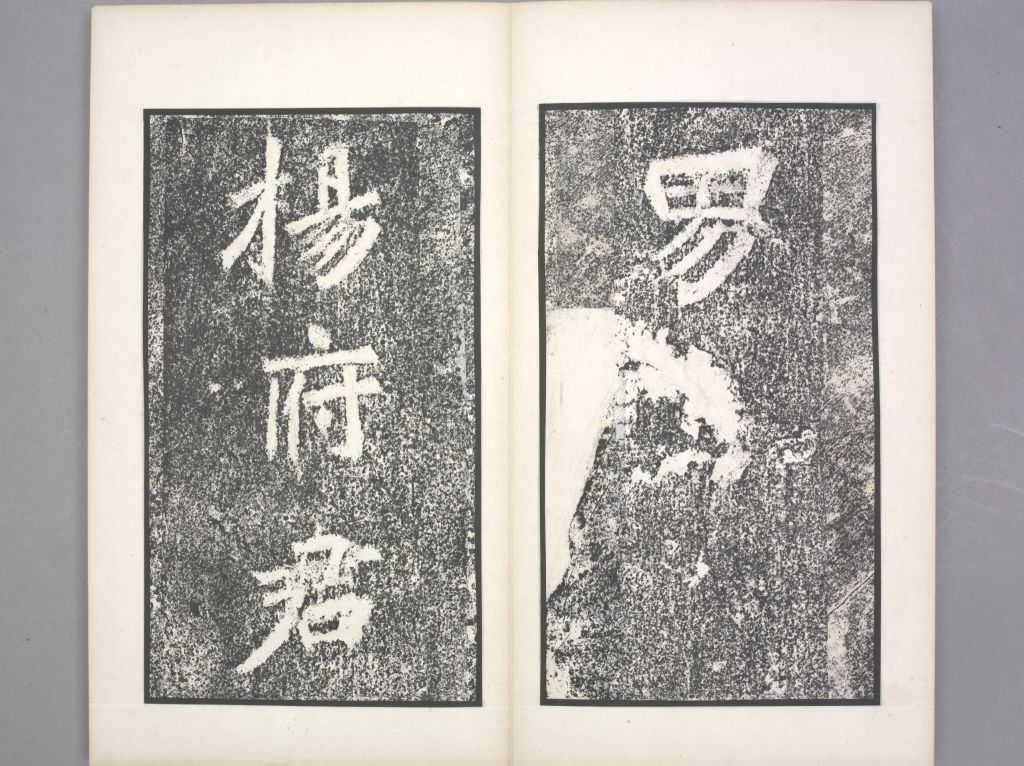 男
楊府君